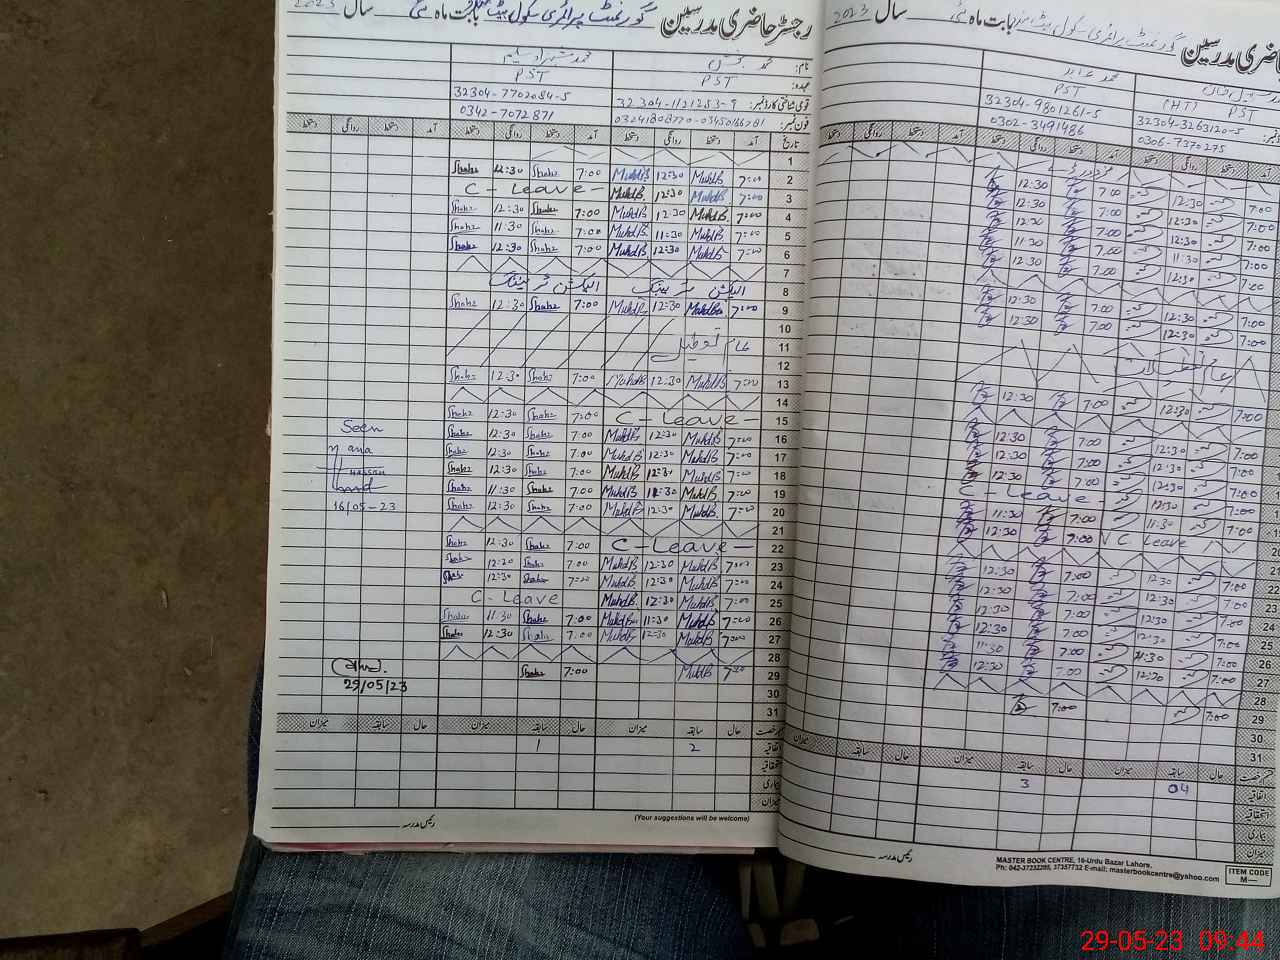 رجسٹر حاضری مدرسین گورنمنٹ پرائمری سکول بابت ماہ مئی سال 2023
نام: محمد
محمد شہزاد سلیم
عہدہ: PST PST
قومی شناختی کارڈ نمبر: 32304-1121253-9 32304-7702084-5
فون نمبر: 03241808770-03450166781 0342-7072871
تاریخ آمد دستخط روانگی دستخط آمد دستخط روانگی دستخط آمد دستخط روانگی دستخط
1
2 7:00 MuhdB 12:30 MuhdB 7:00 Shahz 12:30 Shahz
3 7:00 MuhdB. 12:30 MuhdB. C-Leave-
4 7:00 MuhdB. 12:30 MuhdB 7:00 Shahz 12:30 Shahz
5 7:00 MuhdB. 11:30 MuhdB. 7:00 Shahz 11:30 Shahz
6 7:00 MuhdB. 12:30 MuhdB. 7:00 Shahz 12:30 Shahz
7
8 الیکشن ٹریننگ الیکشن ٹریننگ
9 7:00 MuhdB 12:30 MuhdB 7:00 Shahz 12:30 Shahz
10
11 عام تعطیل
12
13 7:00 MuhdB 12:30 MuhdB 7:00 Shahz 12:30 Shahz
14
15 C-Leave- 7:00 Shahz 12:30 Shahz
16 7:00 MuhdB 12:30 MuhdB 7:00 Shahz 12:30 Shahz
17 7:00 MuhdB 12:30 MuhdB 7:00 Shahz 12:30 Shahz
18 7:00 MuhdB 12:30 MuhdB 7:00 Shahz 12:30 Shahz
19 7:00 MuhdB. 11:30 MuhdB 7:00 Shahz 11:30 Shahz
20 7:00 MuhdB. 12:30 MuhdB 7:00 Shahz 12:30 Shahz
21
22 C-Leave- 7:00 Shahz 12:30 Shahz
23 7:00 MuhdB 12:30 MuhdB 7:00 Shahz 12:20 Shahz
24 7:00 MuhdB 12:30 MuhdB 7:00 Shahz 12:30 Shahz
25 7:00 MuhdB 12:30 MuhdB. C-Leave
26 7:00 MuhdB 11:30 MuhdB 7:00 Shahz 11:30 Shahz
27 7:00 MuhdB 12:30 MuhdB 7:00 Shahz 12:30 Shahz
28
29 7:00 MuhdB 7:00 Shahz
30
31
Seen
Rana
Hassan
16/05-23
29/05/23
رخصت حال سابقہ میزان حال سابقہ میزان حال سابقہ میزان
اتفاقیہ 2 1
استحقاقیہ
بیماری
میزان
(Your suggestions will be welcome)
رئیس مدرسہ
حاضری مدرسین گورنمنٹ پرائمری سکول بابت ماہ مئی سال 2023
محمد عابد
PST (HT) PST
32304-3263120-5 32304-9801261-5
0306-7370275 0302-3491486
آمد دستخط روانگی دستخط آمد دستخط روانگی دستخط آمد دستخط روانگی دستخط
7:00 12:30 7:00 12:30
7:00 12:30 7:00 12:30
7:00 12:30 7:00 12:30
7:00 11:30 7:00 11:30
7:00 12:30 7:00 12:30
7:00 12:30 7:00 12:30
7:00 12:30 7:00 12:30
7:00 12:30 7:00 12:30
7:00 12:30 7:00 12:30
7:00 12:30 7:00 12:30
7:00 12:30 7:00 12:30
7:00 12:30 C-Leave-
7:00 11:30 7:00 11:30
C Leave 7:00 12:30
7:00 12:30 7:00 12:30
7:00 12:30 7:00 12:30
7:00 12:30 7:00 12:30
7:00 12:30 7:00 12:30
7:00 11:30 7:00 11:30
7:00 12:30 7:00 12:30
7:00 7:00
21
22
23
24
25
26
27
28
29
30
31
رخصت حال سابقہ میزان حال سابقہ میزان حال سابقہ میزان
اتفاقیہ 04 3
استحقاقیہ
بیماری
میزان
رئیس مدرسہ
MASTER BOOK CENTRE, 16-Urdu Bazar Lahore.
Ph: 042-37232285, 37357732 E-mail; masterbookcentre@yahoo.com
ITEM CODE
M—
29-05-23 09:44